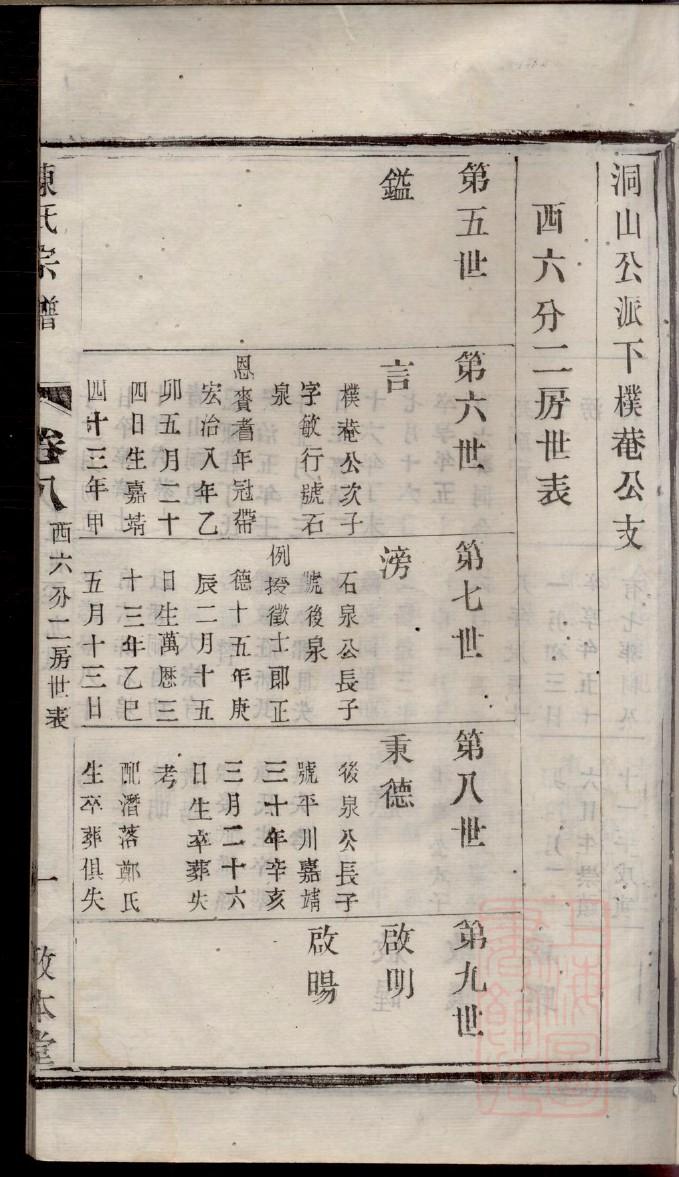 洞山公派下樸菴公支
西六分二房世表
第五世
鑑
第六世
言
樸菴公次子
字敏行號石
泉
恩賚耆年冠帶
宏治八年乙
卯五月二十
四日生嘉靖
四十三年甲
第七世
滂
石泉公長子
號後泉
例授徵士郎正
德十五年庚
辰二月十五
日生萬厯三
十三年乙巳
五月十三日
第八世
秉德
後泉公長子
號平川嘉靖
三十年辛亥
三月二十六
日生卒葬失
考
配潛落鄭氏
生卒葬俱失
第九世
啟明
啟暘
陳氏宗譜
卷八
西六分二房世表
一
敦本堂
上海圖書館藏